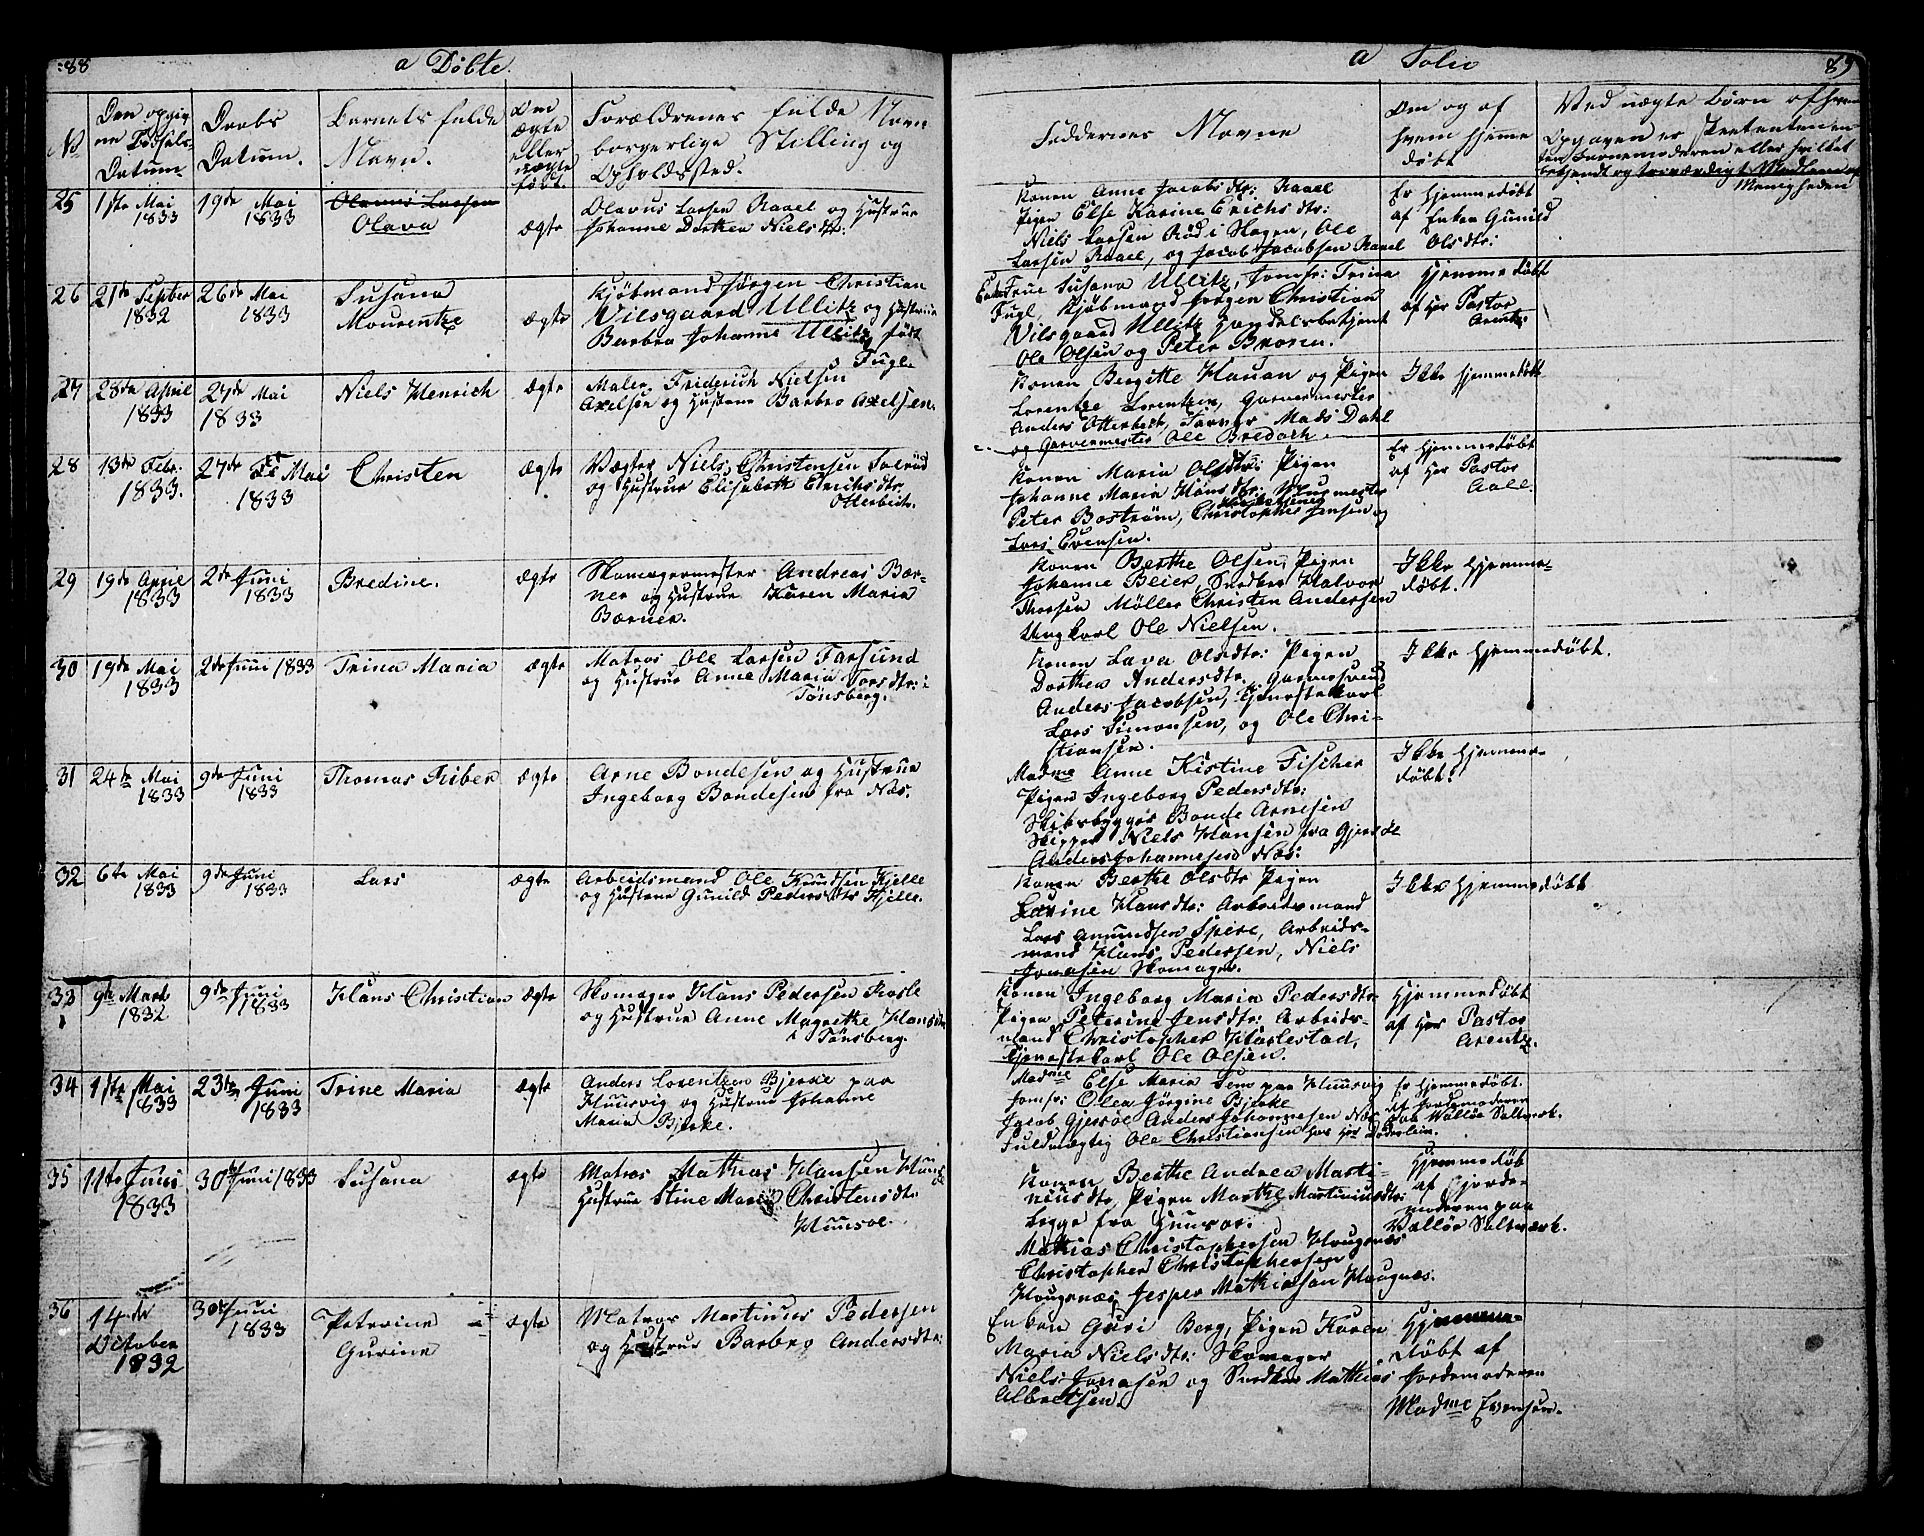 88
a Döbte.
No
Den opgiv
ne Födsels-
Datum
Daabs
Datum.
Barnets fulde
Navn.
Om
ægte
eller
uægte
födt.
Forældrenes fulde Navn
borgerlige Stilling og
Opholdssted.
25
1ste Mai
1833
19de Mai
1833
Olavus Larsen
Olava
ægte
Olavus Larsen Raael og Hustrue
Johanne Dorthea Niels dtr:
26
21de Septbr
1832
26de Mai
1833
Susana
Mourentze
ægte
Kjöbmand Jörgen Christian
Vilsgaard Ullitz og Hustrue
Barbro Johanne Ullitz födt
Fugl.
27
28de April
1833
27de Mai
1833
Niels Henrich
ægte
Maler Friderich Nielsen
Axelsen og Hustrue Barbro Axelsen.
28
13de Febr:
1833.
27de Mai
1833
Christen
ægte
Vægter Niels Christensen Solrud
og Hustrue Elisabeth Erichs dtr.
Otterbech.
29
19de
1833
2de Juni
1833
Bredine.
ægte
Skomagermester Andreas Bær-
ner og Hustrue Karen Maria
Bærner.
30
19de Mai
1833
2de Juni 1833
Trina Maria
ægte
Matros Ole Larsen Farsund
og Hustrue Anne Maria Torsdtr: i
Tönsberg.
31
24de Mai
1833
9de Juni
1833
Thomas Riber
ægte
Arne Bondesen og Hustrue
Ingeborg Bondesen fra Næs.
32
6te Mai
1833
9de Juni
1833
Lars
ægte
Arbeidsmand Ole Knudsen Hjelle
og Hustrue Gunild Peders dtr Hjelle.
33
9de Marts
1832
9de Juni
1833
Hans Christian
ægte
Skomager Hans Pedersen
og Hustrue Anne Magrethe Hansdtr
i Tönsberg.
34
1ste Mai
1833
23de Juni
1833
Trine Maria
ægte
Anders Lorentzen Bjerke paa
Huusvig og Hustrue Johanne
Maria Bjerke.
35
11te Juni
1833
30de Juni 1833
Susana
ægte
Matros Mathias Hansen
Hustrue Stine Maria Christensdtr:
Huusöe.
36
14de
October
1832
30de Juni
1833
Petrine
Gurine
ægte
Matros Martinus Pedersen
og Hustrue Barbro Andersdtr:
a Folio
89
Faddernes Navne
Om og af
hvem hjeme
döbt
Ved uægte Börn af hvem
Opgaven er skeet enten en-
ten Barnemoderen eller hvilket
bekjendt og troværdigt Medlem af
Menigheden
Konen Anne Jacobs dtr: Raael
Pigen Else Karine Erichs dtr:
Niels Larsen Röd i Slagen, Ole
Larsen Raael, og Jacob Jacobsen Raael
Er hjemmedöbt
af Enken Gunild
Olsdtr:
Enkefrue Susana Ullitz, Jomfr: Trina
Fugl, Kjöbmand Jörgen Christian
Vilsgaard Ullitz Handelsbetjent
Ole Olsen og Peter Bruun.
Hjemmedöbt
af Her Pastor
Arentz:
Konen Bergitte Hauan og Pigen
Lorentze Lorentzen, Garvermester
Anders Otterbech, Farver Mads Dahl
og Garvermester Ole Bredoch.
Ikke hjemmedöbt
Konen Maria Olsdtr: Pigen
Johanne Maria Hansdtr: Muurmester
Peter Boström, Christopher Jensen og
Lars Evensen.
Er hjemmedöbt
af Her Pastor
Aall.
Konen Berthe Olsen, Pigen
Johanne Beier, Snedker Halvor
Thorsen Möller Christen Andersen
Ungkarl Ole Nielsen.
Ikke hjemme-
döbt.
Konen Lava Olsdtr: Pigen
Dorthea Andersdtr. Garversvend
Anders Jacobsen, Tjenestekarl
Lars Simonsen, og Ole Chri-
stiansen.
Ikke hjemmedöbt.
Madme Anne Kistine Fischer
Pigen Ingeborg Pedersdtr:
Skibsbygger Bonde Arnesen
Skipper Niels Hansen fra Gjersöe
Anders Johannesen Næs:
Ikke hjemme-
döbt.
Konen Berthe Olsdtr Pigen
Lavine Hansdtr: Arbeidsmand
Lars Amundsen Spere, Arbeids-
mand Hans Pedersen, Niels
Jonasen Skomager.
Ikke hjemmedöbt
Konen Ingeborg Maria Pedersdtr:
Pigen Peterine Jensdtr: Arbeids-
mand Christopher Harlestad,
Tjenestekarl Ole Olsen.
Hjemmedöbt
af Her Pastor
Arentz.
Madme Else Maria Sem paa Huusvig
Jomfr: Olea Görgine Bjerke
Jacob Gjersöe Anders Johannesen Næs
Fuldmægtig Ole Christiansen hos Hr: Döderlein.
Er hjemmedöbt.
af Jordemoderen
paa Valløe Saltværk.
Konen Berthe Andrea Marti-
niusdtr, Pigen Marthe Martiniusdtr:
begge fra Huusöe:
Mathias Christophersen Hougnæs
Christopher Christophersen
Hougnæs, Jesper Mathiasen Hougnæs.
Hjemmedöb
af Gjorde-
moderen paa
Vallöe Saltværk.
Enken Guri Berg, Pigen Karen
Maria Nielsdtr: Skomager
Niels Jonasen og Snedker Mathias
Albretsen.
Hjemme-
döbt af
Jordemoderen
Madme Evensen.